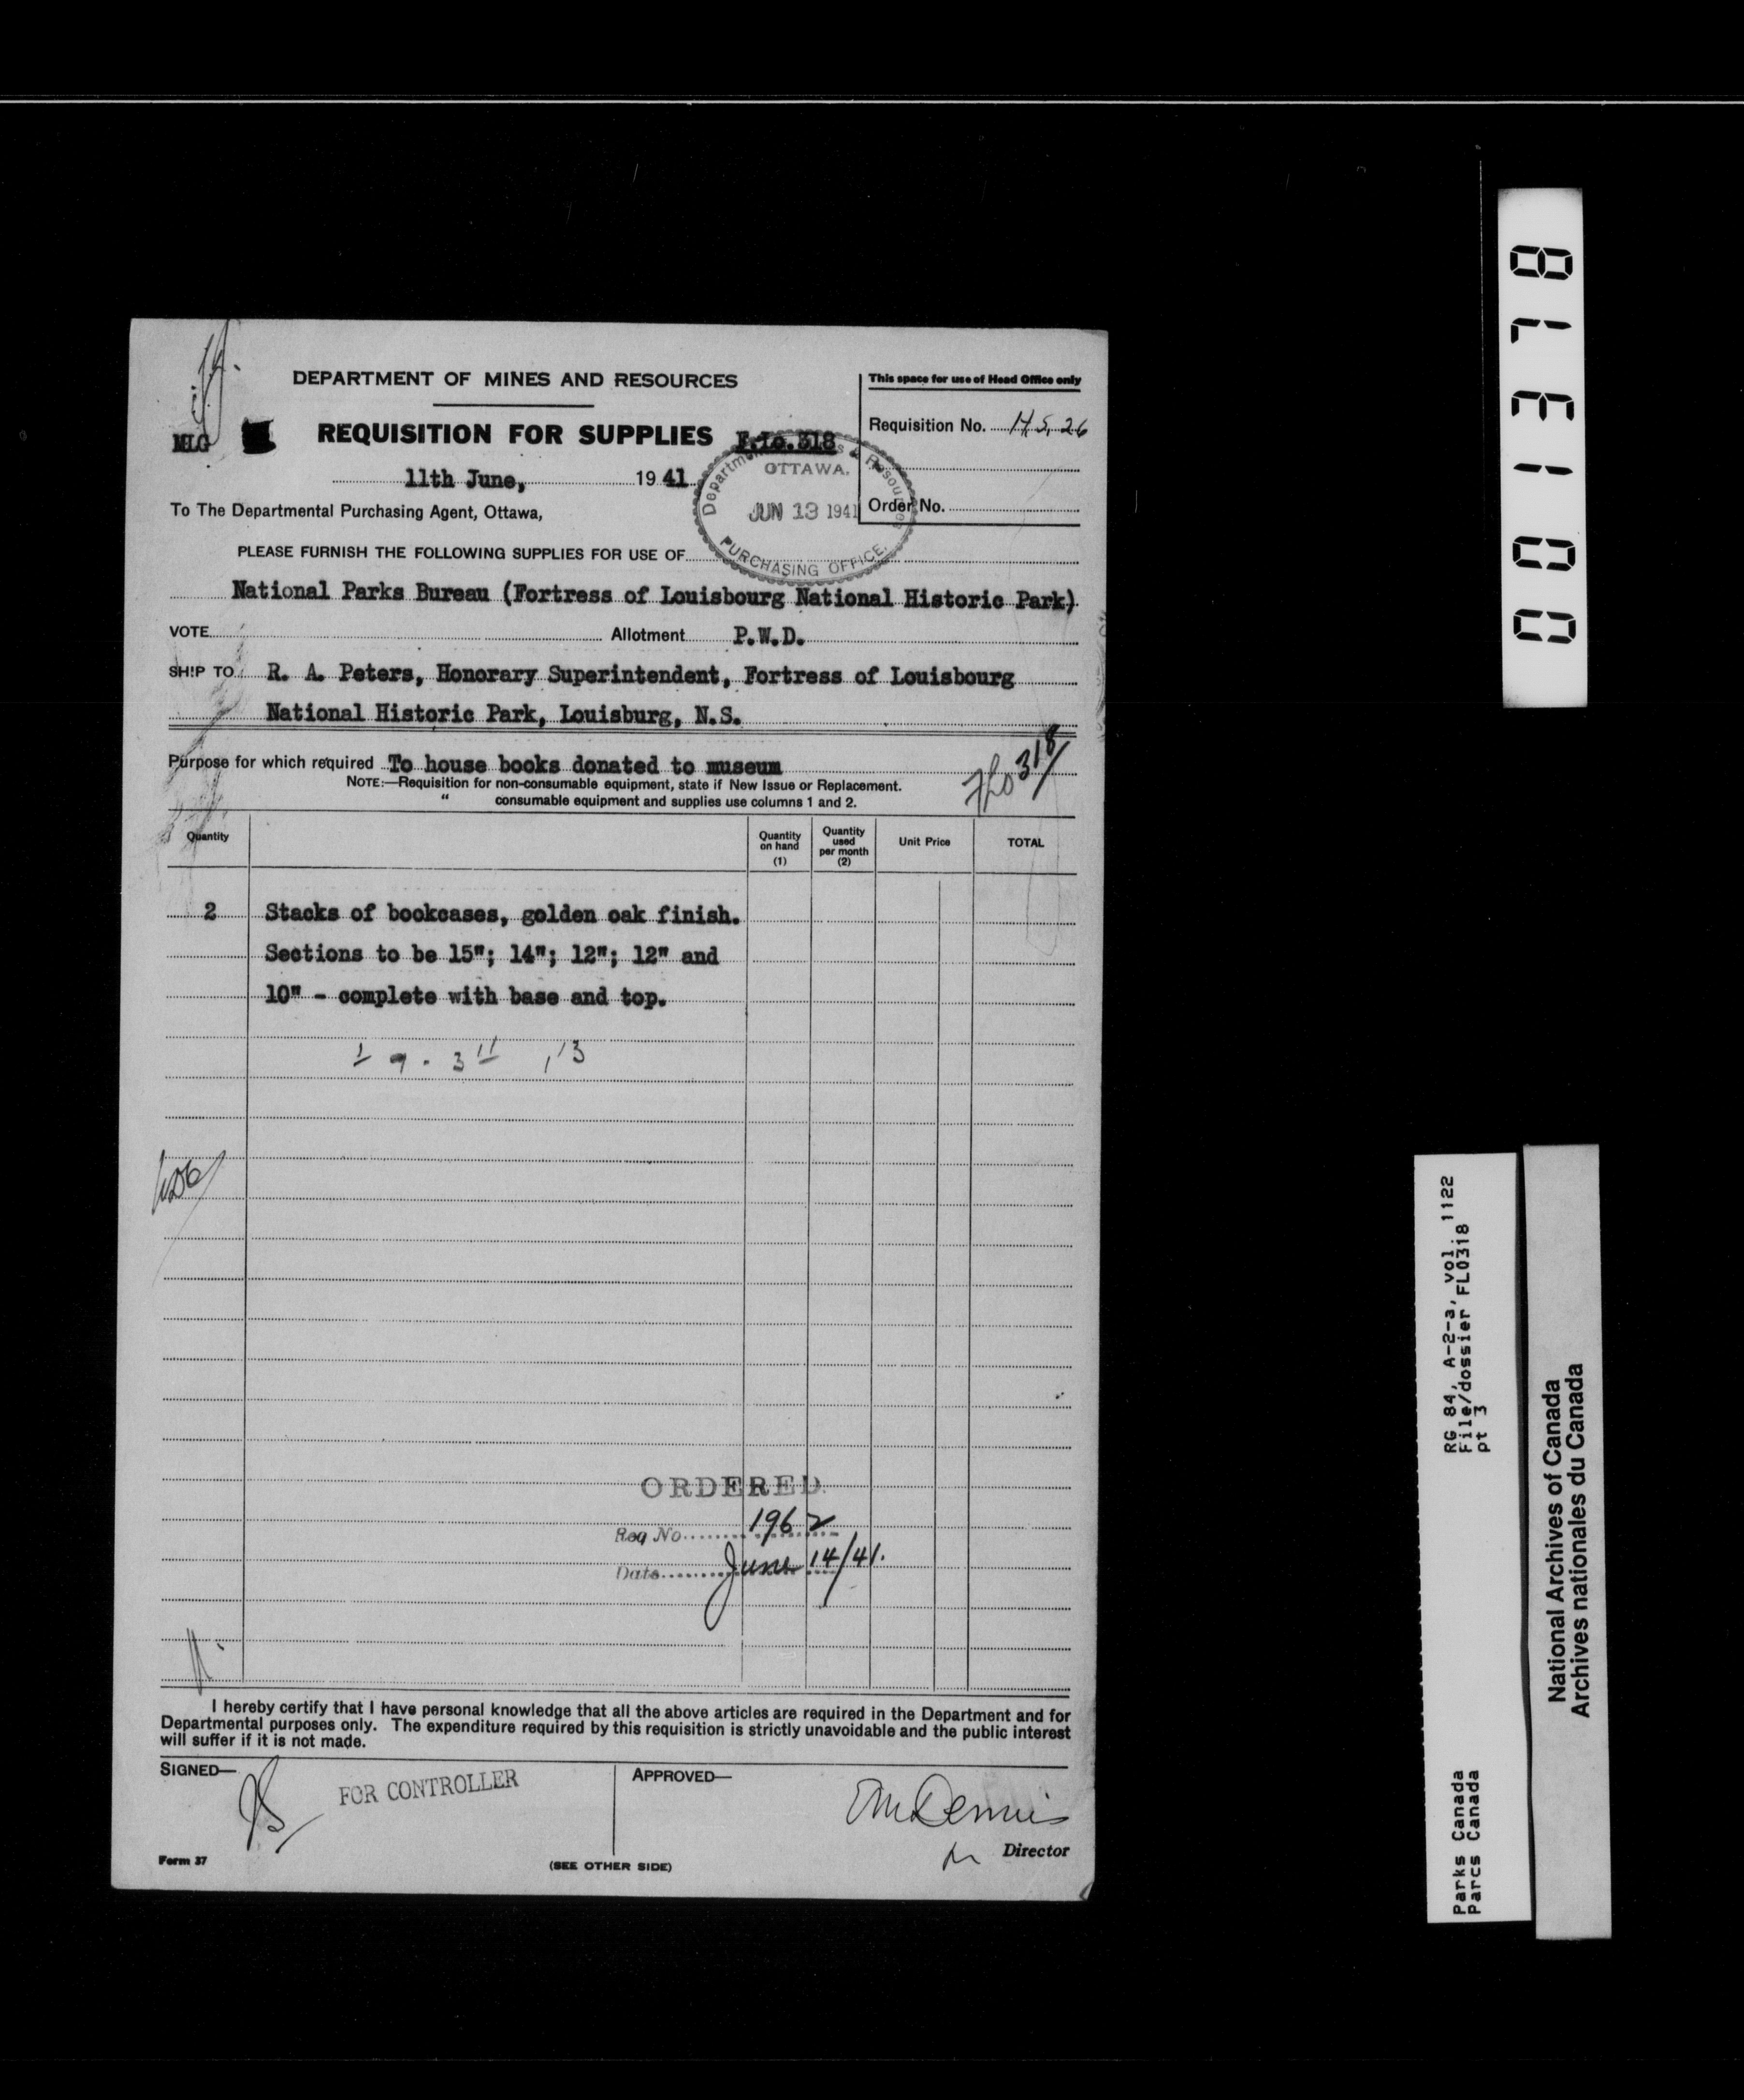 DEPARTMENT OF MINES AND RESOURCES
This space for use of Head Office only
MLG
REQUISITION FOR SUPPLIES
F.Lo.318
Requisition No. H.S. 26
11th June, 1941
Department of Mines & Resources
OTTAWA.
JUN 13 1941
PURCHASING OFFICE.
Order No.
To The Departmental Purchasing Agent, Ottawa,
PLEASE FURNISH THE FOLLOWING SUPPLIES FOR USE OF
National Parks Bureau (Fortress of Louisbourg National Historic Park)
VOTE Allotment P.W.D.
SHIP TO R. A. Peters, Honorary Superintendent, Fortress of Louisbourg
National Historic Park, Louisburg, N.S.
Purpose for which required To house books donated to museum
FLO 318
NOTE:—Requisition for non-consumable equipment, state if New Issue or Replacement.
" consumable equipment and supplies use columns 1 and 2.
Quantity
Quantity on hand (1)
Quantity used per month (2)
Unit Price
TOTAL
2 Stacks of bookcases, golden oak finish.
Sections to be 15"; 14"; 12"; 12" and
10" - complete with base and top.
ORDERED
Req No. 1962
Date June 14/41.
I hereby certify that I have personal knowledge that all the above articles are required in the Department and for
Departmental purposes only. The expenditure required by this requisition is strictly unavoidable and the public interest
will suffer if it is not made.
SIGNED—
FOR CONTROLLER
APPROVED—
Director
Form 37
(SEE OTHER SIDE)
001378
RG 84, A-2-a, vol. 1122
File/dossier FLO318
pt 3
Parks Canada
Parcs Canada
National Archives of Canada
Archives nationales du Canada